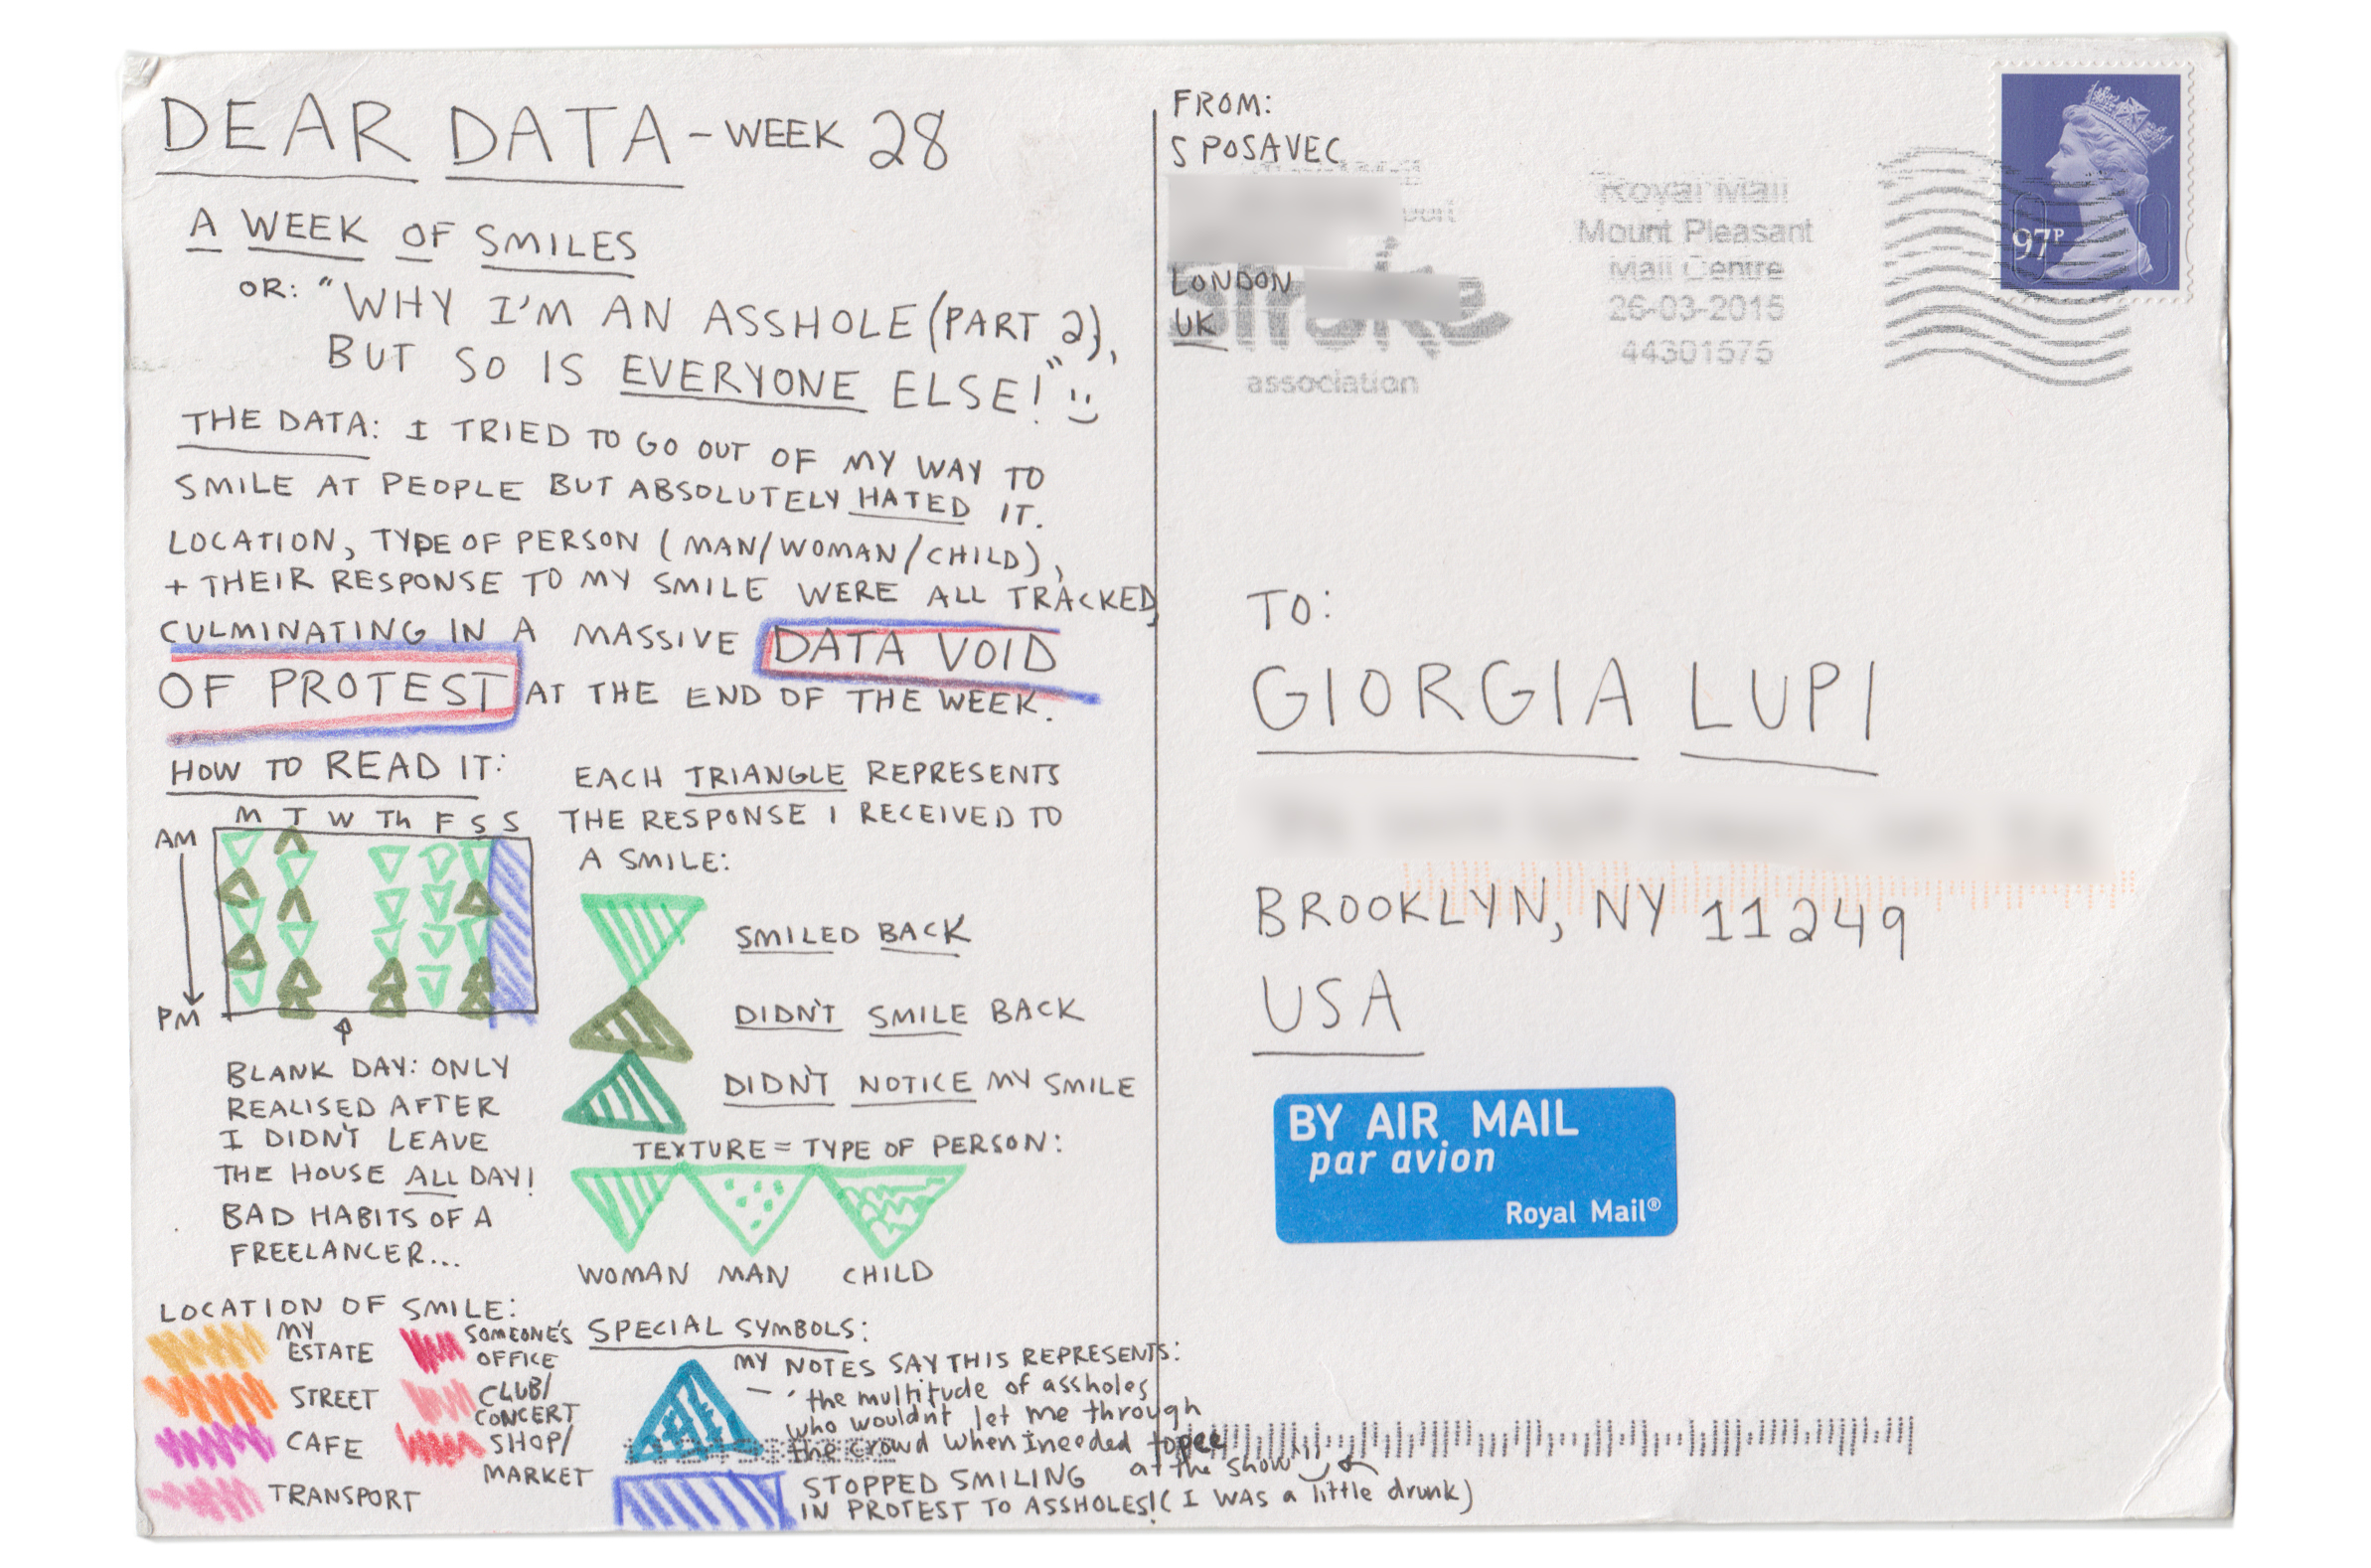 DEAR DATA - WEEK 28
A WEEK OF SMILES
OR: "WHY I'M AN ASSHOLE (PART 2),
BUT SO IS EVERYONE ELSE!" :)
THE DATA: I TRIED TO GO OUT OF MY WAY TO
SMILE AT PEOPLE BUT ABSOLUTELY HATED IT.
LOCATION, TYPE OF PERSON (MAN/WOMAN/CHILD),
+ THEIR RESPONSE TO MY SMILE WERE ALL TRACKED,
CULMINATING IN A MASSIVE DATA VOID
OF PROTEST AT THE END OF THE WEEK.
HOW TO READ IT:
M T W Th F S S
AM
PM
BLANK DAY: ONLY
REALISED AFTER
I DIDN'T LEAVE
THE HOUSE ALL DAY!
BAD HABITS OF A
FREELANCER...
EACH TRIANGLE REPRESENTS
THE RESPONSE I RECEIVED TO
A SMILE:
SMILED BACK
DIDN'T SMILE BACK
DIDN'T NOTICE MY SMILE
TEXTURE = TYPE OF PERSON:
WOMAN MAN CHILD
LOCATION OF SMILE:
MY
ESTATE
STREET
CAFE
TRANSPORT
SOMEONE'S
OFFICE
CLUB/
CONCERT
SHOP/
MARKET
SPECIAL SYMBOLS:
MY NOTES SAY THIS REPRESENTS:
— 'the multitude of assholes
who wouldn't let me through
the crowd when I needed to pee
at the show'
STOPPED SMILING
IN PROTEST TO ASSHOLES! (I WAS a little drunk)
FROM:
S POSAVEC
LONDON
UK
association
Royal Mail
Mount Pleasant
Mail Centre
26-03-2015
44301575
97P
TO:
GIORGIA LUPI
BROOKLYN, NY 11249
USA
BY AIR MAIL
par avion
Royal Mail®